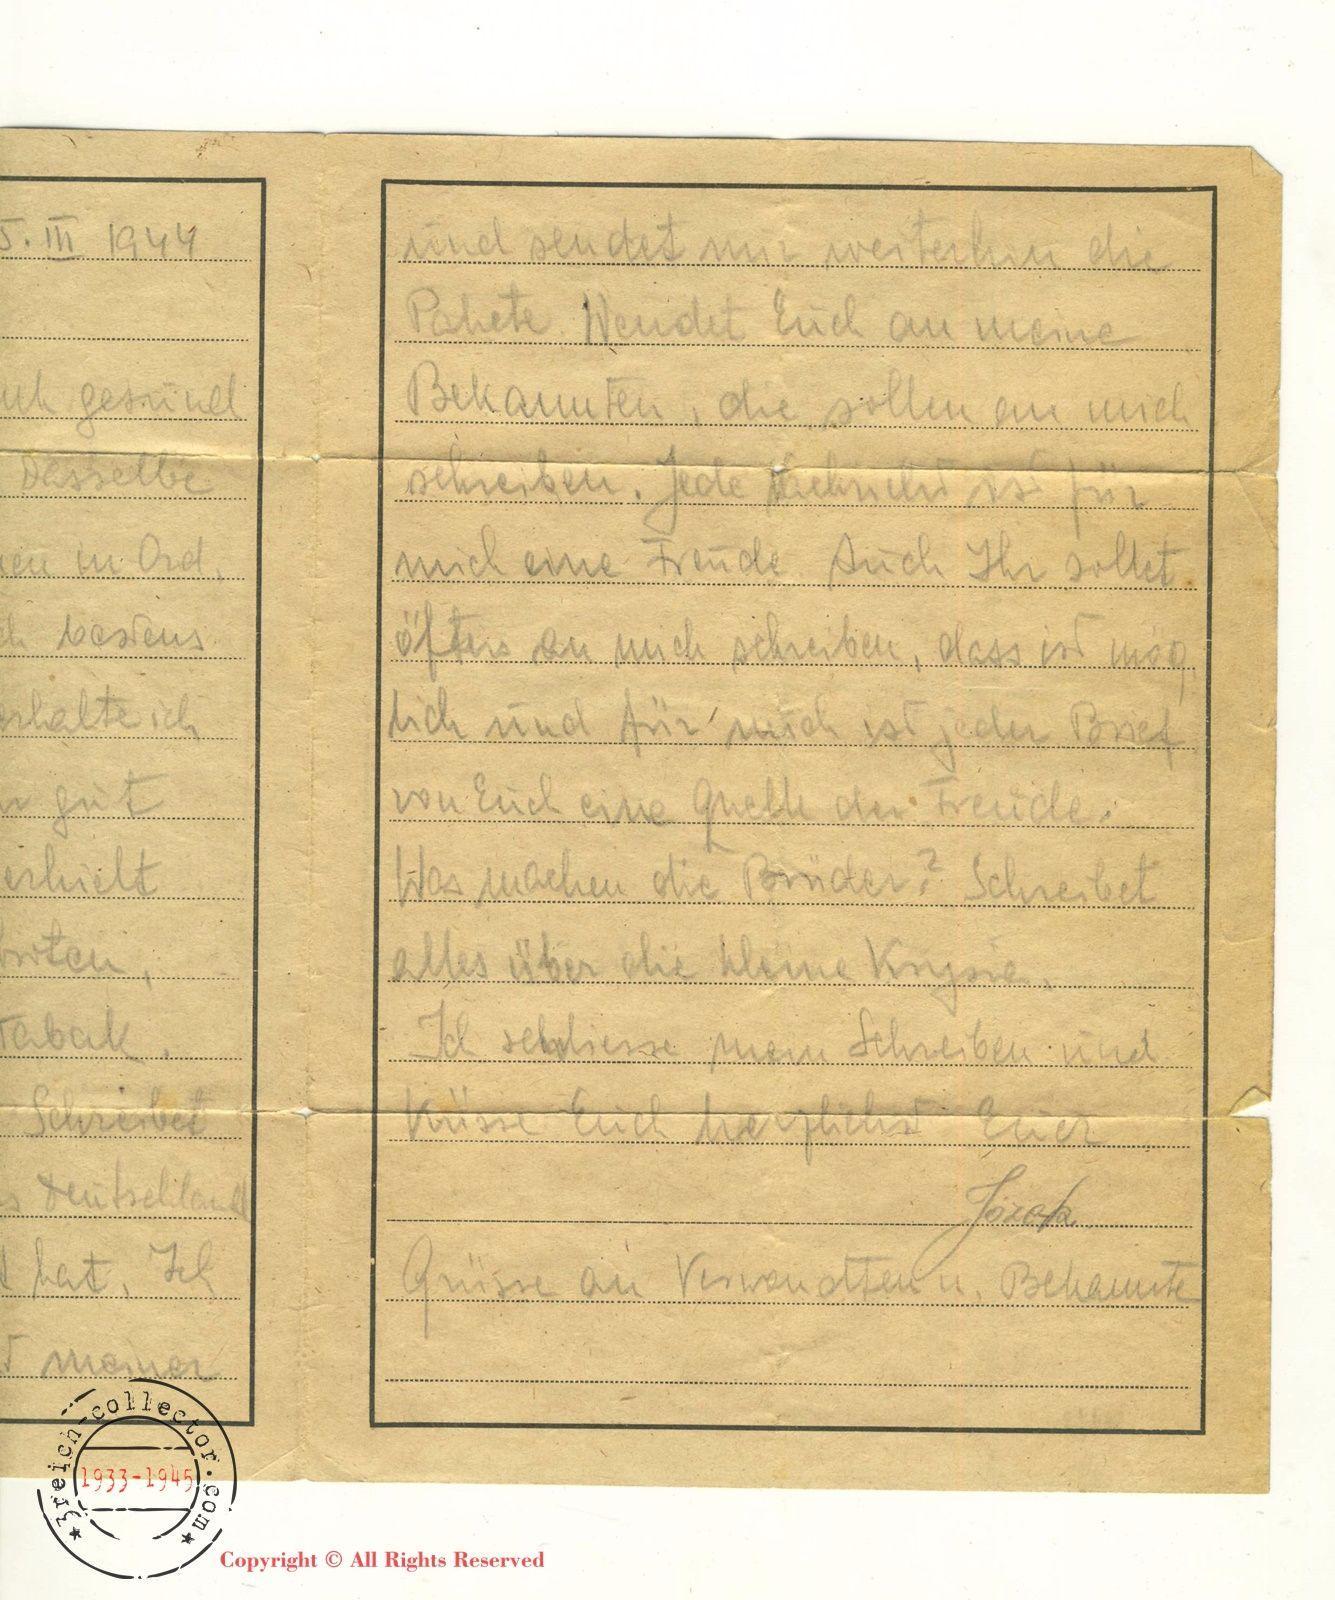 5. III 1944
gesund
Dasselbe
in Ord.
bestens
erhalte ich
gut
erhielt
Tabak.
Schreibet
Deutschland
hat. Ich
meiner
und sendet mir weiterhin die
Pakete. Wendet Euch an meine
Bekannten, die sollen an mich
schreiben. Jede Nachricht ist für
mich eine Freude. Auch Ihr sollet
öfters an mich schreiben, dass ist mög
lich und für mich ist jeder Brief
von Euch eine Quelle der Freude.
Was machen die Brüder? Schreibet
alles über die kleine Krysia.
Ich schliesse mein Schreiben und
Küsse Euch herzlichst Euer
Józek
Grüsse an Verwandten u. Bekannte
★3reich-collector.com★
1933-1945
Copyright © All Rights Reserved